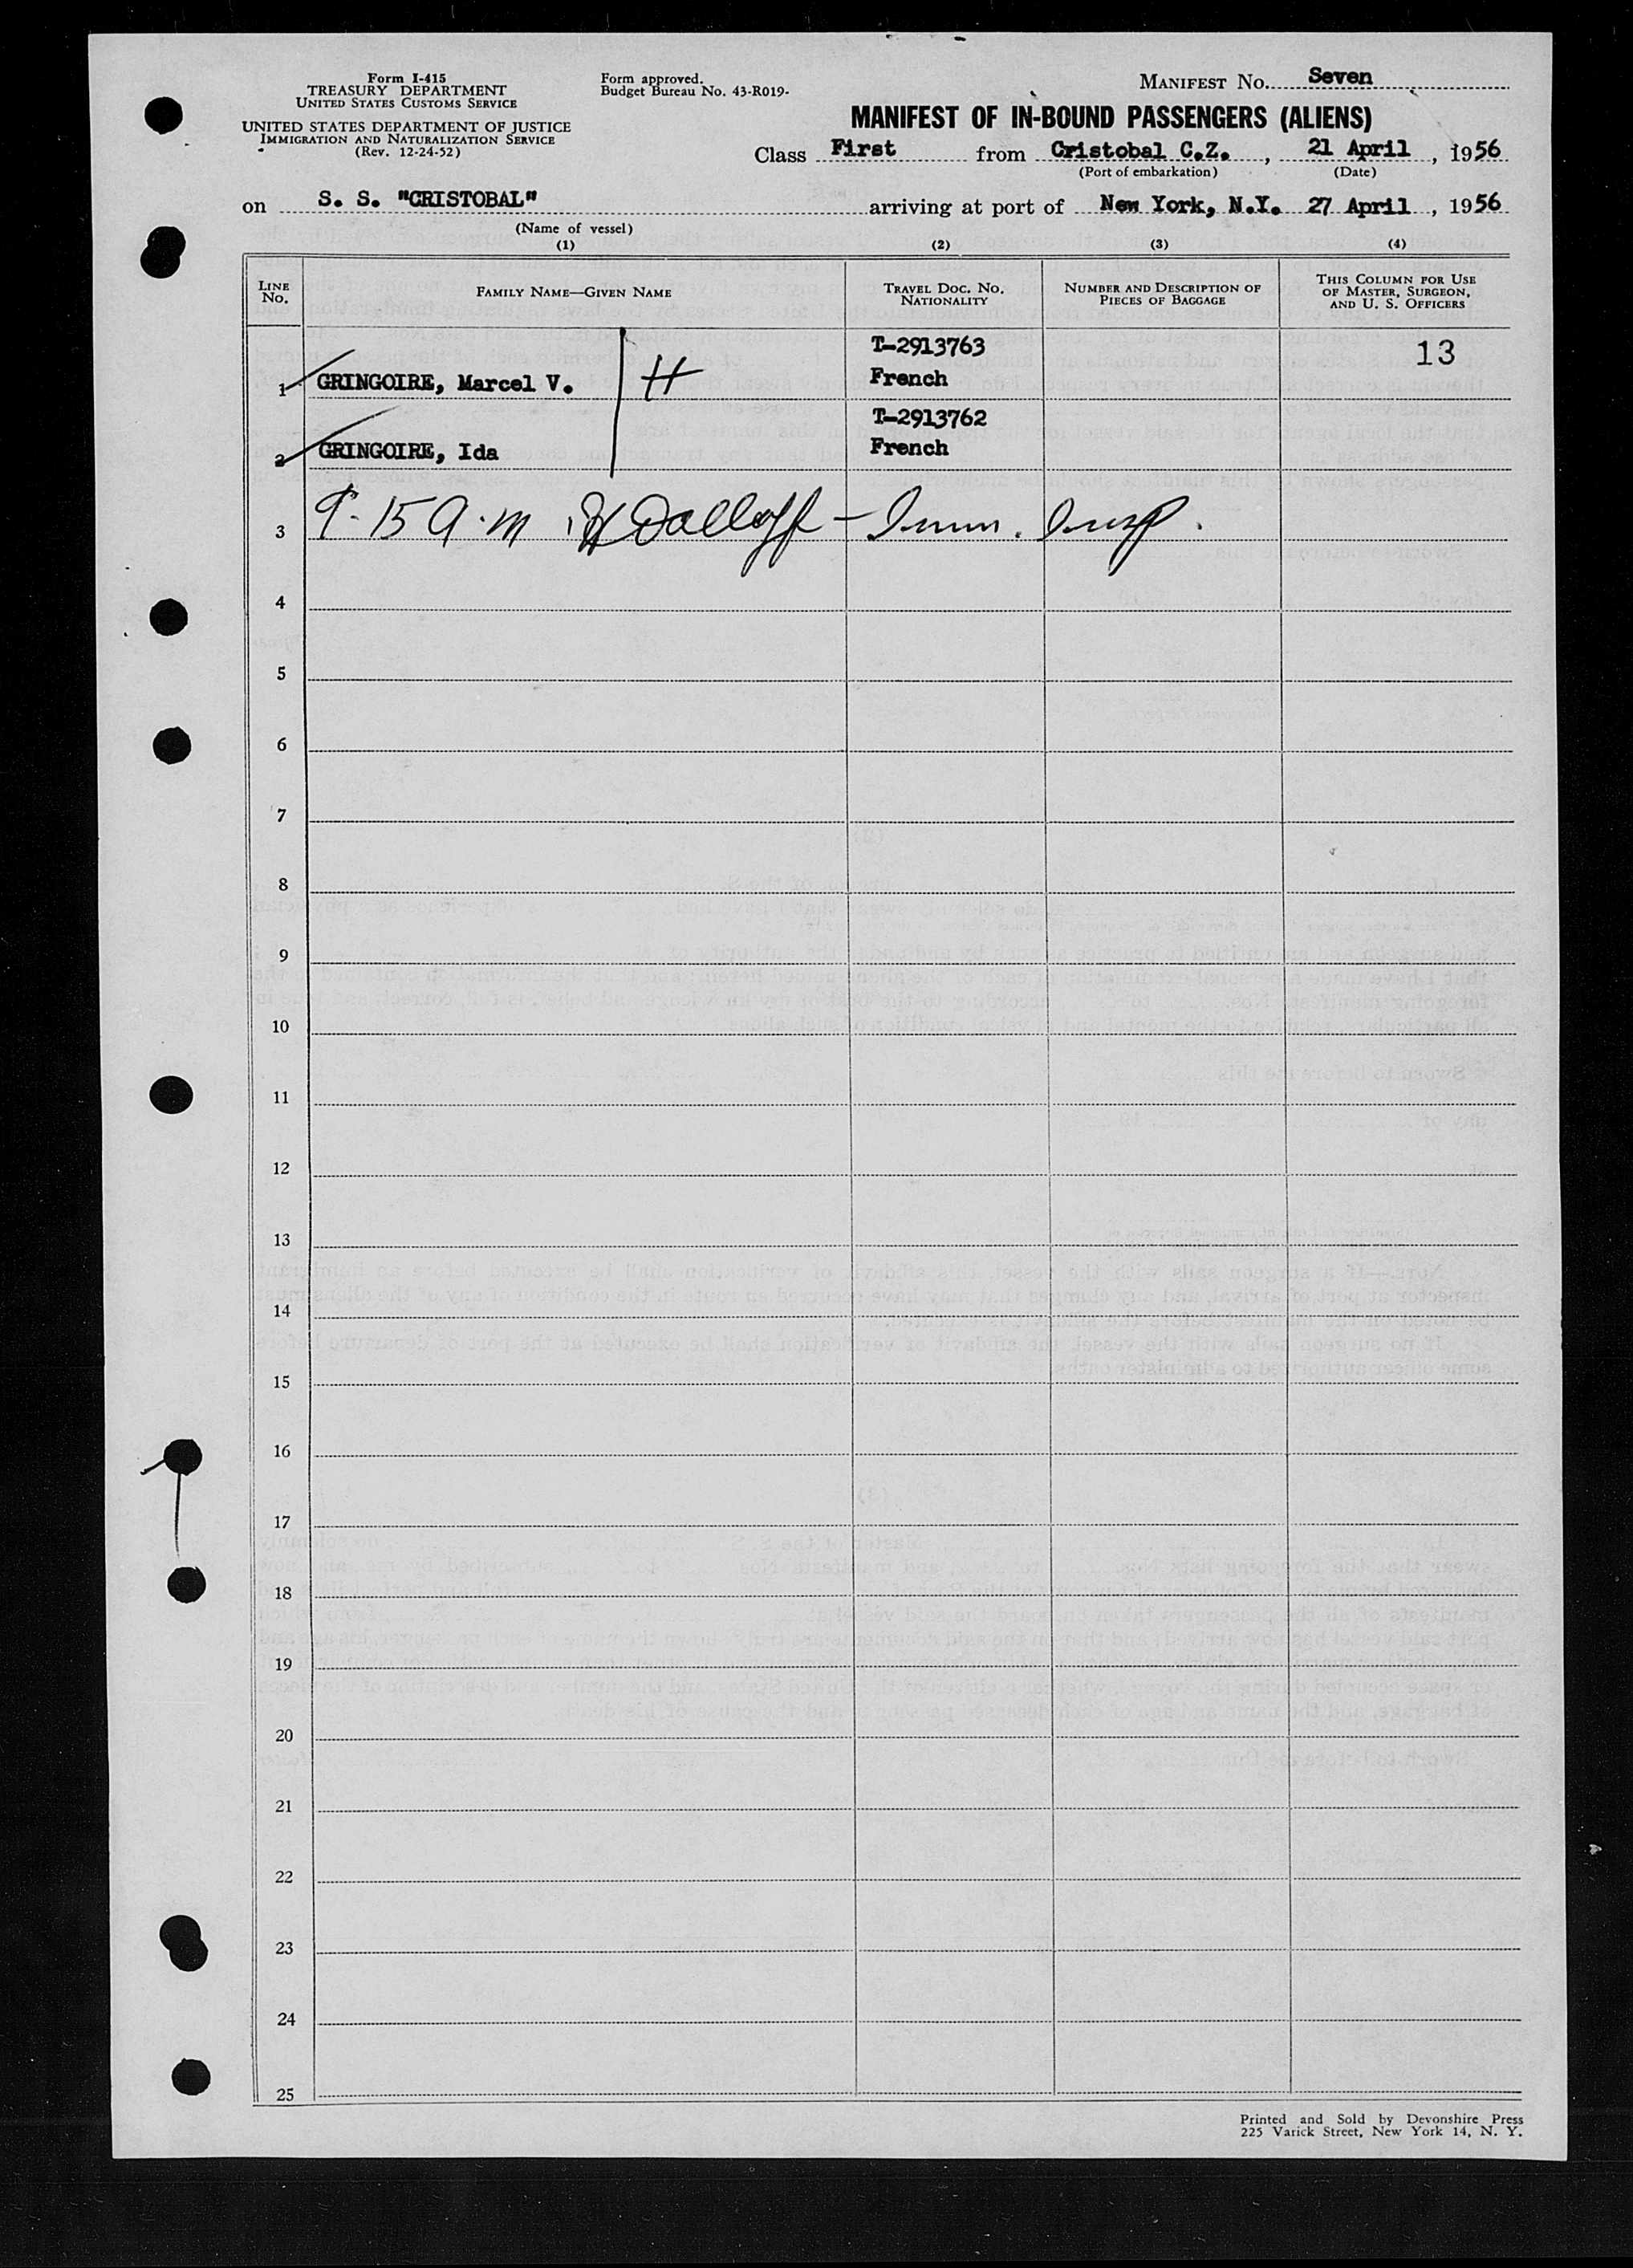 Form I-415
TREASURY DEPARTMENT
UNITED STATES CUSTOMS SERVICE
UNITED STATES DEPARTMENT OF JUSTICE
IMMIGRATION AND NATURALIZATION SERVICE
(Rev. 12-24-52)
Form approved.
Budget Bureau No. 43-R019-
MANIFEST No. Seven
MANIFEST OF IN-BOUND PASSENGERS (ALIENS)
Class First from Cristobal C.Z., 21 April, 1956
(Port of embarkation) (Date)
on S. S. "CRISTOBAL" arriving at port of New York, N.Y. 27 April, 1956
(Name of vessel)
(1) (2) (3) (4)
LINE No. FAMILY NAME—GIVEN NAME TRAVEL DOC. No. NATIONALITY NUMBER AND DESCRIPTION OF PIECES OF BAGGAGE THIS COLUMN FOR USE OF MASTER, SURGEON, AND U. S. OFFICERS
T-2913763 13
1 GRINGOIRE, Marcel V. H French
T-2913762
2 GRINGOIRE, Ida French
3 9-15 A.M - Imm. Insp.
4
5
6
7
8
9
10
11
12
13
14
15
16
17
18
19
20
21
22
23
24
25
Printed and Sold by Devonshire Press
225 Varick Street, New York 14, N. Y.